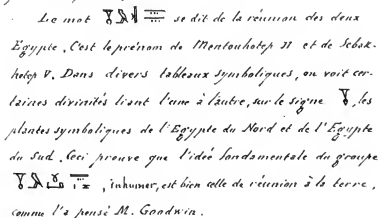 Le mot 𓄋𓅓 se dit de la réunion des deux
Egypte. C'est le prénom de Mentouhotep II et de Sebak-
hotep V. Dans divers tableaux symboliques, on voit cer-
taines divinités liant l'une à l'autre, sur le signe 𓄥, les
plantes symboliques de l'Egypte du Nord et de l'Egypte
du Sud. Ceci prouve que l'idée fondamentale du groupe
, inhumer, est bien celle de réunion à la terre,
comme l'a pensé M. Goodwin.